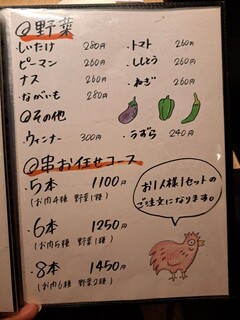 @野菜
・しいたけ 280円
・トマト 260円
ピーマン 260円
・ししとう 260円
・ナス 260円
・ねぎ 260円
・ながいも 280円
@その他
・ウィンナー 300円
・うずら 240円
@串お任せコース
・5本 1100円
(お肉4種 野菜1種)
・6本 1250円
(お肉5種 野菜1種)
・8本 1450円
(お肉6種 野菜2種)
お1人様1セットの
ご注文になります。